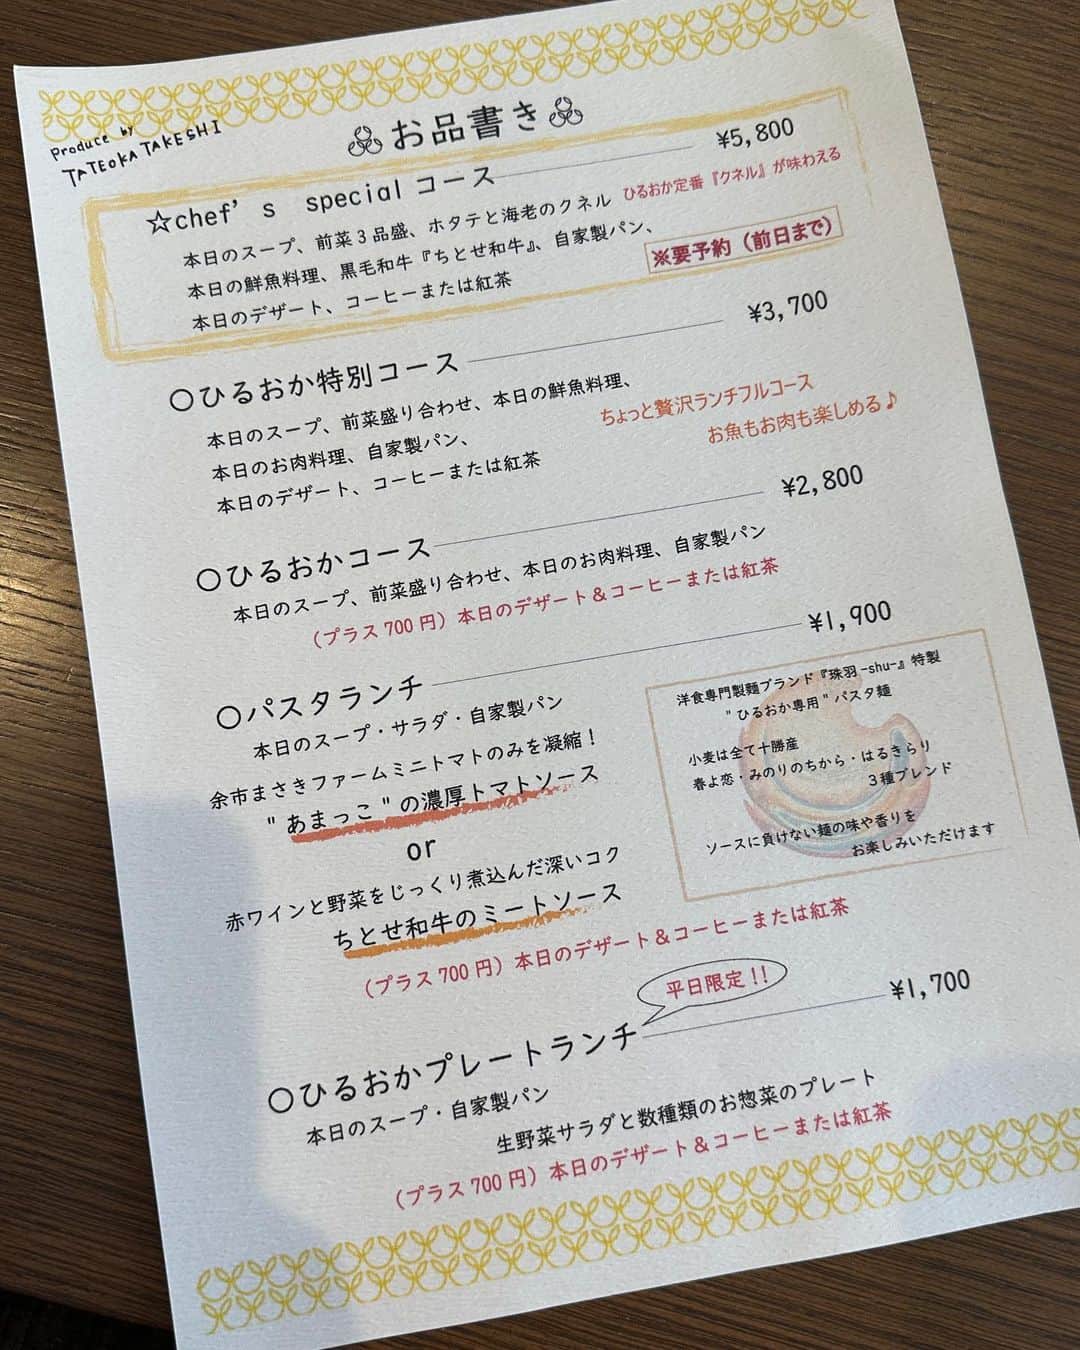 Produce by
TATEOKA TAKESHI
お品書き
☆chef's special コース ¥5,800
ひるおか定番『クネル』が味わえる
本日のスープ、前菜3品盛、ホタテと海老のクネル
本日の鮮魚料理、黒毛和牛『ちとせ和牛』、自家製パン、
本日のデザート、コーヒーまたは紅茶
※要予約（前日まで）
○ひるおか特別コース ¥3,700
本日のスープ、前菜盛り合わせ、本日の鮮魚料理、
本日のお肉料理、自家製パン、
本日のデザート、コーヒーまたは紅茶
ちょっと贅沢ランチフルコース
お魚もお肉も楽しめる♪
○ひるおかコース ¥2,800
本日のスープ、前菜盛り合わせ、本日のお肉料理、自家製パン
（プラス700円）本日のデザート＆コーヒーまたは紅茶
○パスタランチ ¥1,900
本日のスープ・サラダ・自家製パン
余市まさきファームミニトマトのみを凝縮！
"あまっこ"の濃厚トマトソース
or
赤ワインと野菜をじっくり煮込んだ深いコク
ちとせ和牛のミートソース
（プラス700円）本日のデザート＆コーヒーまたは紅茶
洋食専門製麺ブランド『珠羽-shu-』特製
"ひるおか専用"パスタ麺
小麦は全て十勝産
春よ恋・みのりのちから・はるきらり
3種ブレンド
ソースに負けない麺の味や香りを
お楽しみいただけます
平日限定!!
○ひるおかプレートランチ ¥1,700
本日のスープ・自家製パン
生野菜サラダと数種類のお惣菜のプレート
（プラス700円）本日のデザート＆コーヒーまたは紅茶